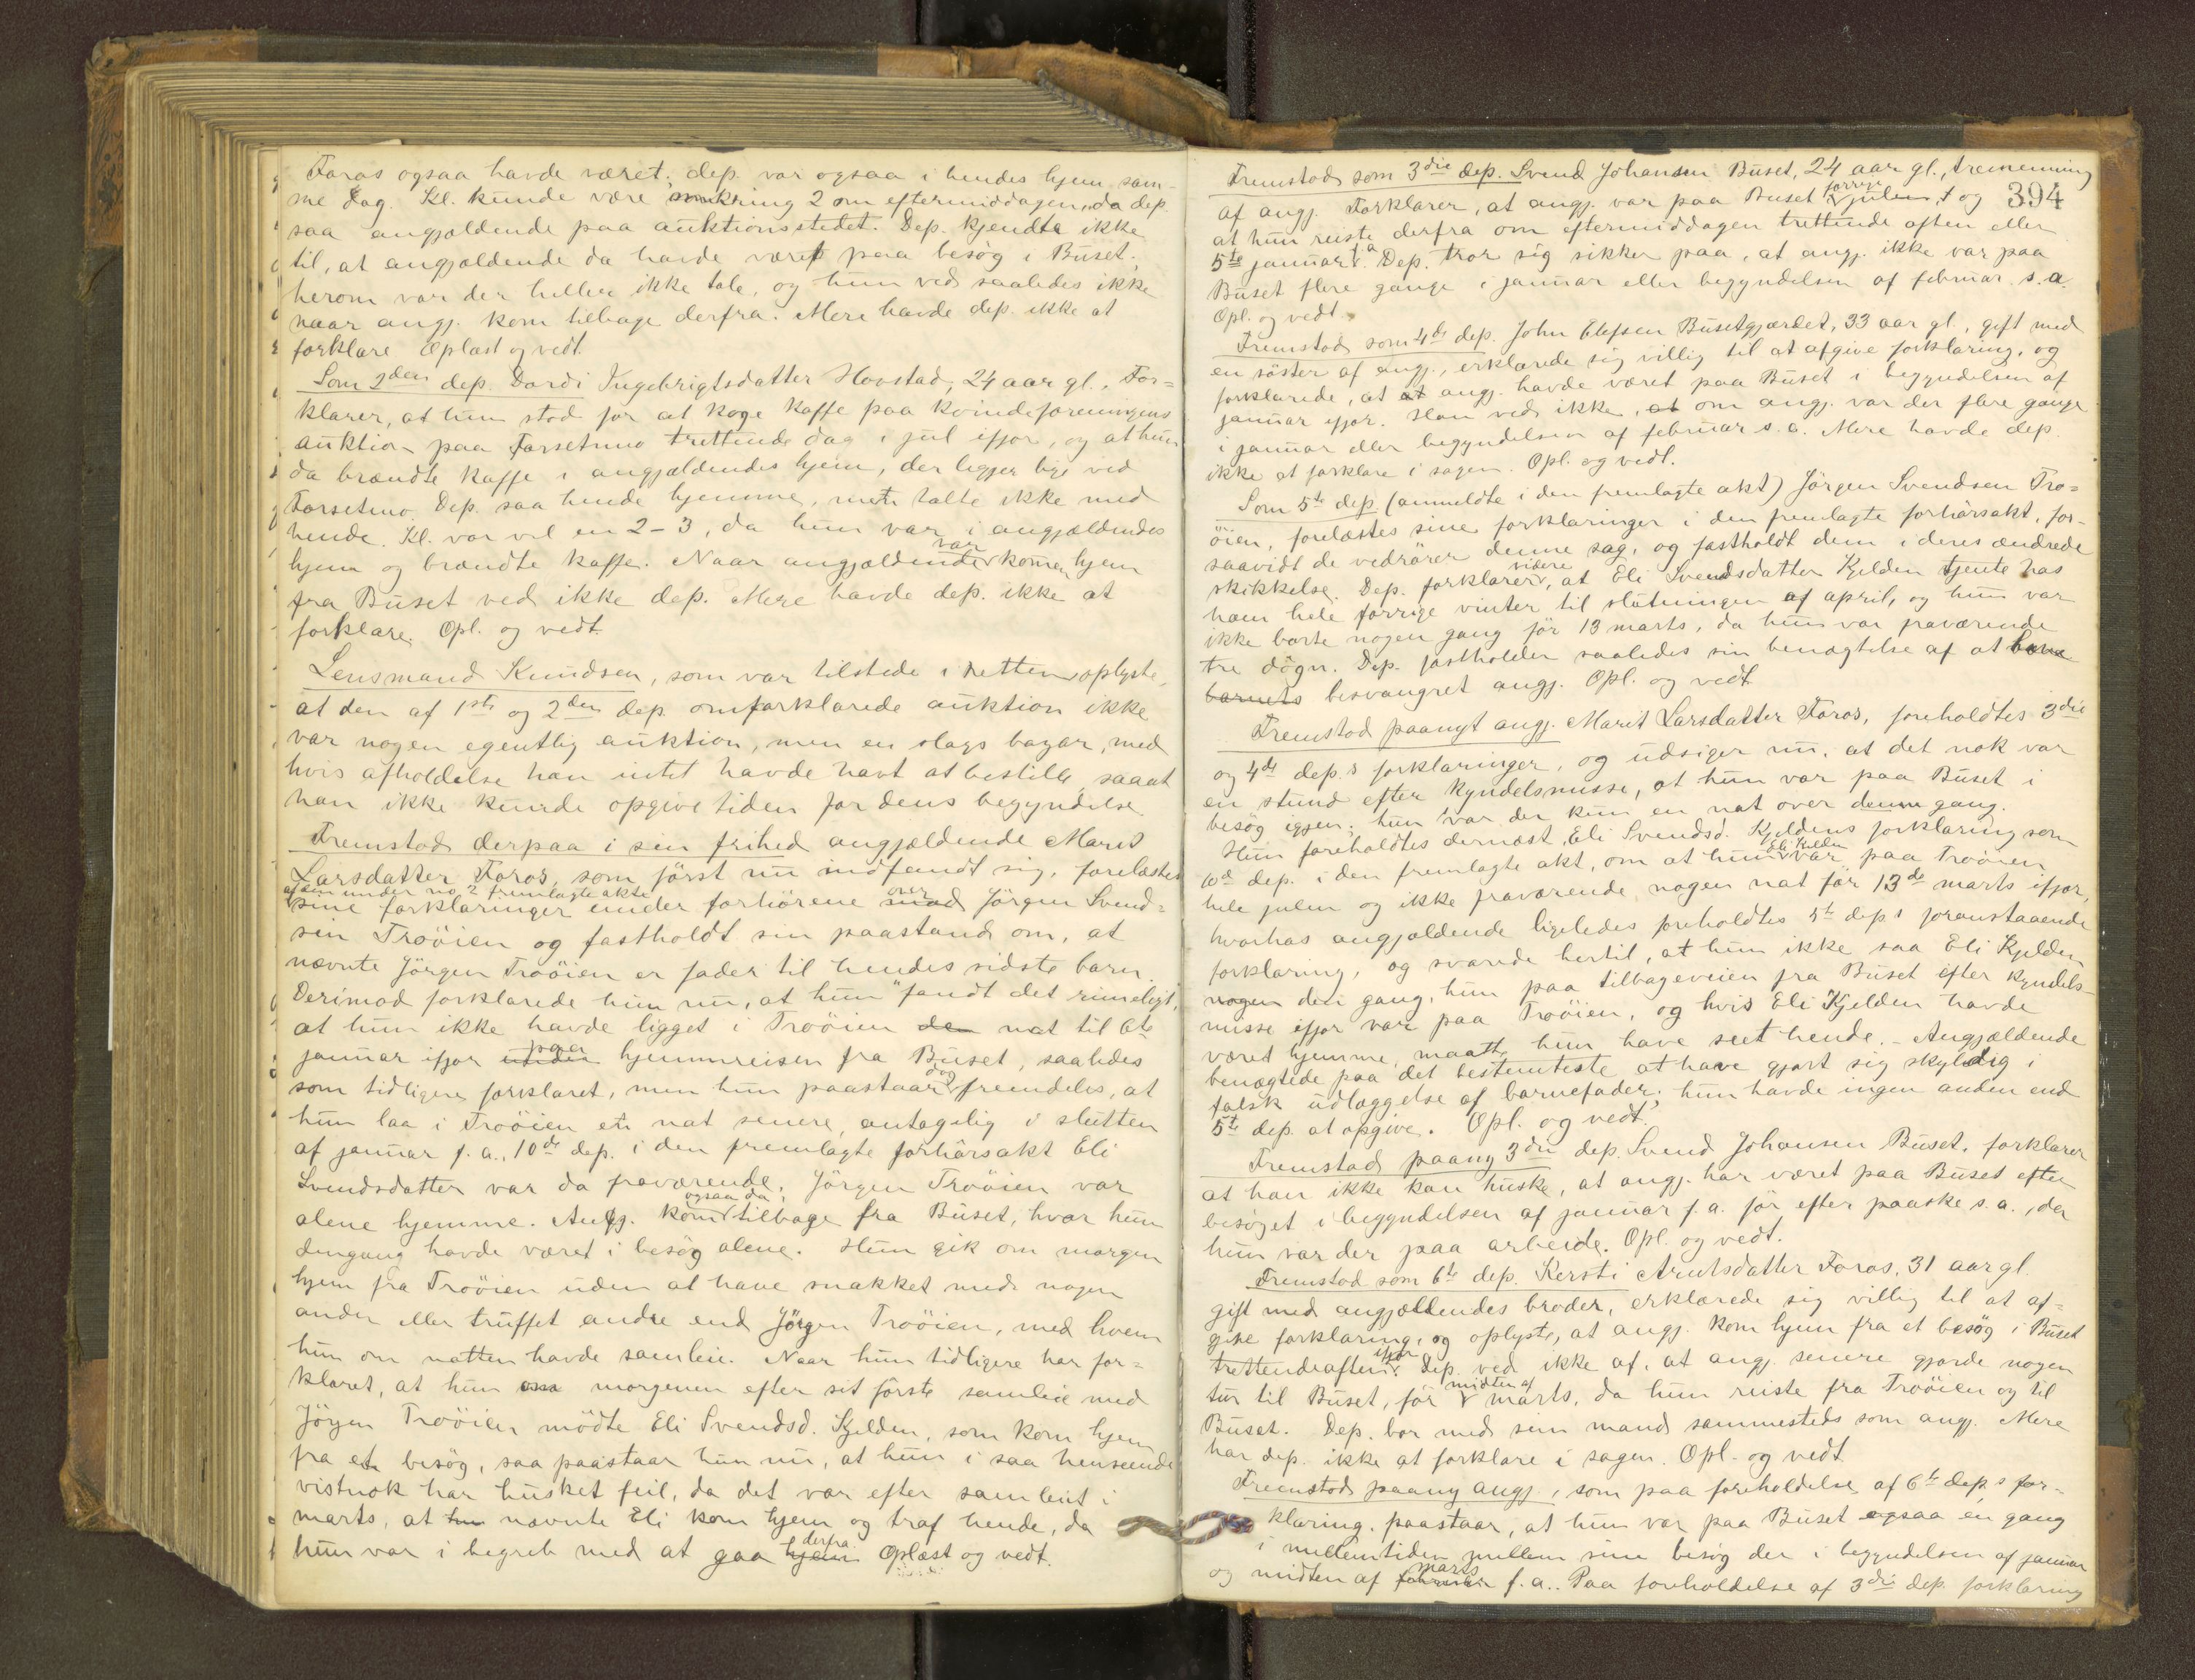 Foros ogsaa havde været; dep. var ogsaa i hendes hjem sam-
me dag. Kl. kunde være omkring 2 om eftermiddagen, da dep.
saa angjældende paa auktionsstedet. Dep. kjendte ikke
til, at angjældende da havde været paa besøg i Buset;
herom var der heller ikke tale, og hun ved saaledes ikke
naar angj. kom tilbage derfra. Mere havde dep. ikke at
forklare Oplæst og vedt.
Som 2den dep. Dordi Ingebrigtsdatter Hovstad, 24 aar gl. For=
klarer, at hun stod for at koge kaffe paa kvindeforeningens
auktion paa Forsetmo trettende dag i jul ifjor, og at hun
da brændte kaffe i angjældendes hjem, der ligger lige ved
Forsetmo. Dep. saa hende hjemme, men talte ikke med
hende. Kl. var vel en 2-3, da hun var i angjældendes
hjem og brændte kaffe. Naar angjældende var kommen hjem
fra Buset ved ikke dep. Mere havde dep. ikke at
forklare. Opl. og vedt.
Lensmand Knudsen, som var tilstede i retten, oplyste,
at den af 1ste og 2den dep. omforklarede auktion ikke
var nogen egentlig auktion, men en slags bazar, med
hvis afholdelse han intet havde havt at bestille, saa at
han ikke kunde opgive tiden for dens begyndelse
Fremstod derpaa i sin frihed angjældende Marit
Larsdatter Foros, som först nu indfandt sig, forelæstes
af den under no. 2 fremlagte akt
sine forklaringer under forhörene over Jörgen Svend=
sen Troöien og fastholdt sin paastand om, at
nævnte Jörgen Troöien er fader til hendes sidste barn.
Derimod forklarede hun nu, at hun "fandt det rimeligt",
at hun ikke havde ligget i Troöien den nat til 6te
januar ifjor paa hjemmreisen fra Buset, saaledes
som tidligere forklaret, men hun paastaar dog fremdeles, at
hun laa i Troöien en nat senere, antagelig i slutten
af januar f.a., 10de dep. i den fremlagte forhörsakt Eli
Svendsdatter var da fraværende. Jörgen Troöien var
alene hjemme. Angj. kom ogsaa da tilbage fra Buset, hvor hun
dengang havde været i besög alene. Hun gik om morgen
hjem fra Troöien uden at have snakket med nogen
anden eller truffet andre end Jörgen Troöien, med hvem
hun om natten havde samleie. Naar hun tidligere har for=
klaret, at hun om morgenen efter sit förste samleie med
Jörgen Troöien mödte Eli Svendsd. Kjelden, som kom hjem
fra et besög, saa paastaar hun nu, at hun i saa henseende
vistnok har husket feil, da det var efter samleiet i
marts, at nævnte Eli kom hjem og traf hende, da
hun var i begreb med at gaa hjem derfra. Oplæst og vedt.
394
Fremstod som 3die dep. Svend Johansen Buset, 24 aar gl., tremenning
af angj. Forklarer, at angj. var paa Buset forrige julen, og
at hun reiste derfra om eftermiddagen trettende aften eller
5te januar f.a. Dep. tror sig sikker paa, at angj. ikke var paa
Buset flere gange i januar eller begyndelsen af februar s.a.
Opl. og vedt.
Fremstod som 4de dep. John Elefsen Busetgjærdet, 33 aar gl., gift med
en söster af angj., erklærede sig villig til at afgive forklaring, og
forklarede, at angj. havde været paa Buset i begyndelsen af
januar ifjor. Han ved ikke, om angj. var der flere gange
i januar eller begyndelsen af februar s.a. Mere havde dep.
ikke at forklare i sagen. Opl. og vedt.
Som 5te dep. (anmeldte i den fremlagte akt) Jörgen Svendsen Tro=
öien, forelæstes sine forklaringer i den fremlagte forhörsakt, for-
saavidt de vedrörer denne sag, og fastholdt dem i deres ændrede
skikkelse. Dep. forklarer videre, at Eli Svendsdatter Kjelden tjente hos
ham hele forrige vinter til slutningen af april, og hun var
ikke borte nogen gang för 13 marts, da hun var fraværende
tre dögn. Dep. fastholder saaledes sin benægtelse af at have
barnets besvangret angj. Opl. og vedt.
Fremstod paanyt angj. Marit Larsdatter Foros, foreholdtes 3die
og 4de dep.s forklaringer, og udsiger nu, at det nok var
en stund efter Kyndelsmisse, at hun var paa Buset i
besög igjen; hun var der kun en nat over denne gang.
Hun foreholdtes dernæst Eli Svendsd. Kjeldens forklaring som
10de dep. i den fremlagte akt, om at hun Eli Kjelden var paa Troöien
hele julen og ikke fraværende nogen nat för 13de marts ifjor,
hvorhos angjældende ligeledes foreholdtes 5te dep.s foranstaaende
forklaring, og svarede hertil, at hun ikke saa Eli Kjelden
nogen den gang, hun paa tilbageveien fra Buset efter Kyndels-
misse ifjor var paa Troöien, og hvis Eli Kjelden havde
været hjemme, maatte hun have seet hende. - Angjældende
benægtede paa det bestemteste at have gjort sig skyldig i
falsk udlæggelse af barnefader; hun havde ingen anden end
5te dep. at opgive. Opl. og vedt.
Fremstod paany 3die dep. Svend Johansen Buset, forklarer
at han ikke kan huske, at angj. har været paa Buset efter
besöget i begyndelsen af januar f.a. för efter paaske s.a., da
hun var der paa arbeide. Opl. og vedt.
Fremstod som 6te dep. Kersti Arntsdatter Foros, 31 aar gl.
gift med angjældendes broder, erklærede sig villig til at af=
give forklaring, og oplyste, at angj. kom hjem fra et besög i Buset
trettendeaften ifjor. Dep. ved ikke af, at angj. senere gjorde nogen
tur til Buset, för midten af marts, da hun reiste fra Troöien og til
Buset. Dep. bor med sin mand sammesteds som angj. Mere
har dep. ikke at forklare i sagen. Opl. og vedt.
Fremstod paany angj., som paa foreholdelse af 6te dep.s for-
klaring, paastaar, at hun var paa Buset ogsaa en gang
i mellemtiden mellem sine besög der i begyndelsen af januar
og midten af marts f.a.. Paa foreholdelse af 3die dep. forklaring